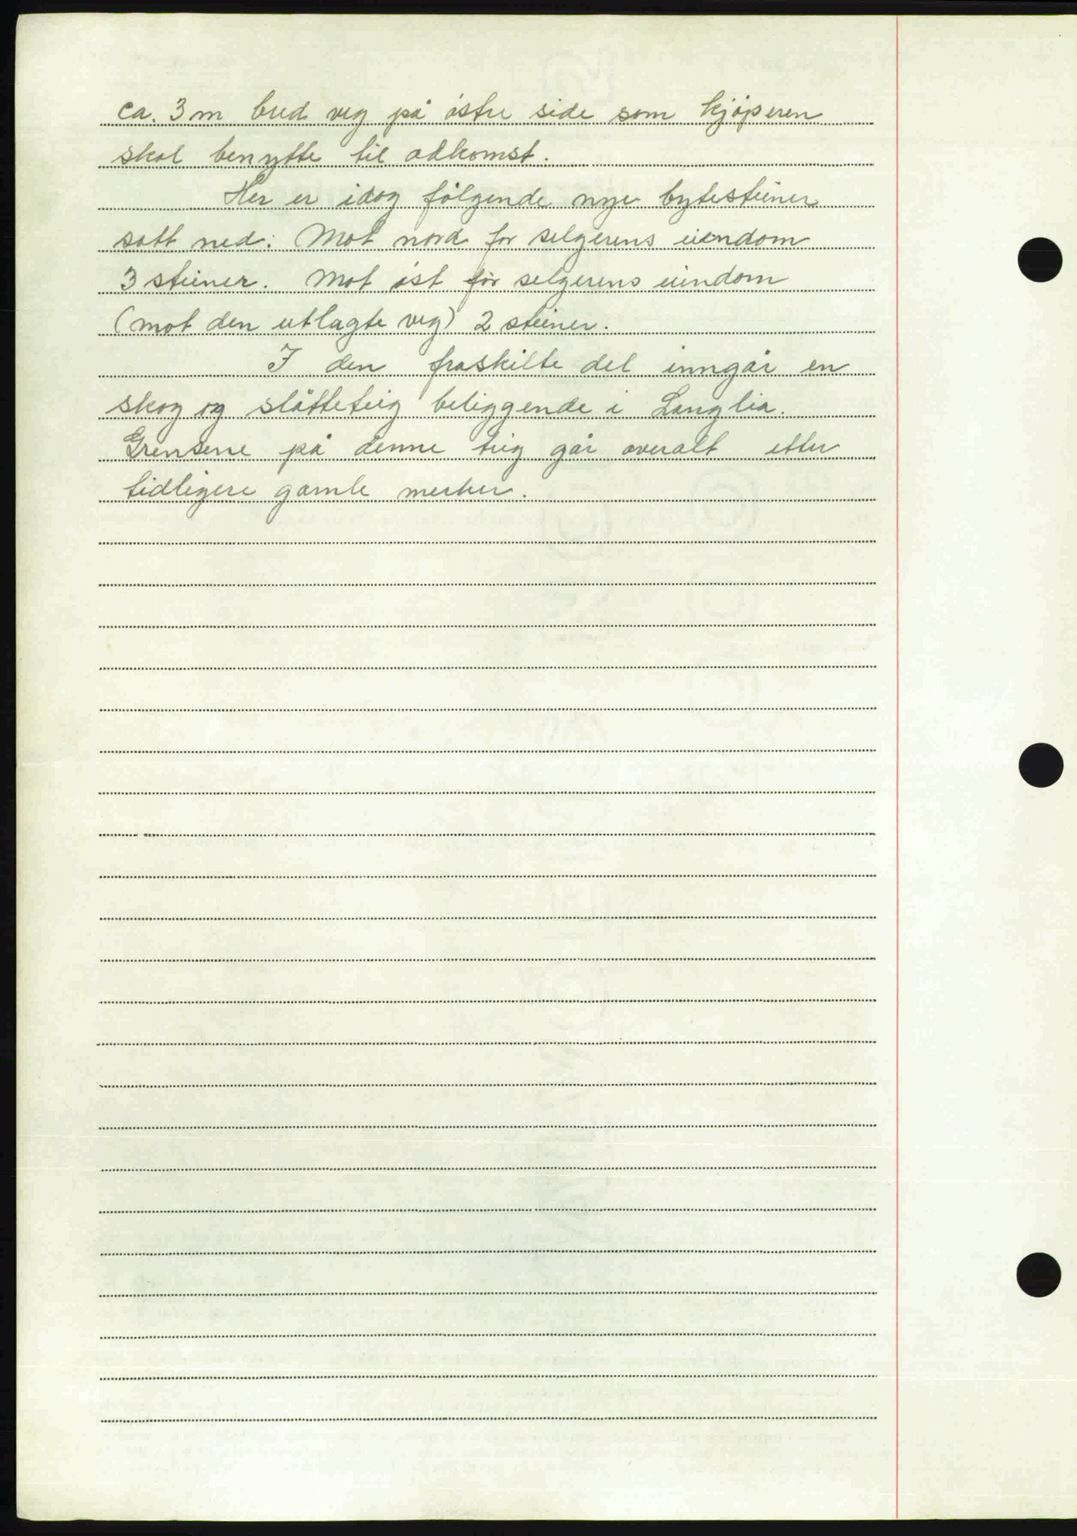 ca. 3 m bred veg på østre side som kjøperen
skal benytte til adkomst.
Her er idag følgende nye bytesteiner
satt ned: Mot nord for selgerens eiendom
3 steiner. Mot øst for selgerens eiendom
(mot den utlagte veg) 2 steiner.
I den fraskilte del inngår en
skog og slåtteteig beliggende i Langlia.
Grensene på denne teig går overalt etter
tidligere gamle merker.